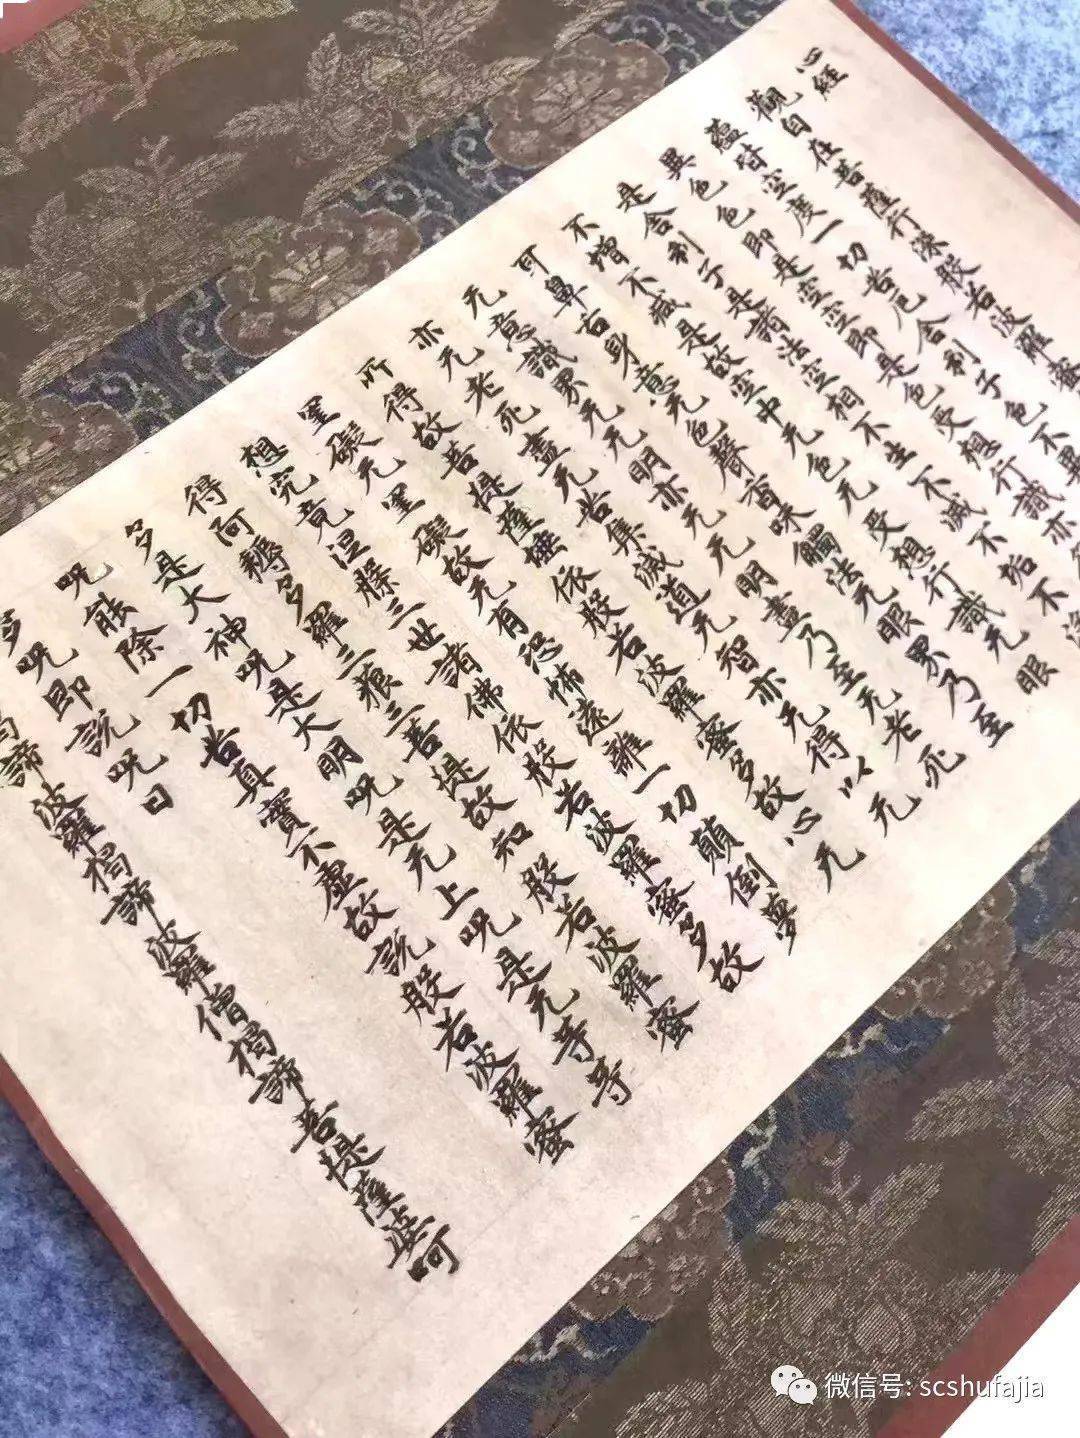 心經
觀自在菩薩行深般若波羅蜜
蘊皆空度一切苦厄舍利子色不異
異色色即是空空即是色受想行識亦
是舍利子是諸法空相不生不滅不垢不淨
不增不減是故空中无色无受想行識无眼
耳鼻舌身意无色聲香味觸法无眼界乃至
无意識界无无明亦无无明盡乃至无老死
亦无老死盡无苦集滅道无智亦无得以无
所得故菩提薩埵依般若波羅蜜多故心无
罣礙无罣礙故无有恐怖遠離一切顛倒夢
想究竟涅槃三世諸佛依般若波羅蜜多故
得阿耨多羅三藐三菩提故知般若波羅蜜
多是大神呪是大明呪是无上呪是无等等
呪能除一切苦真實不虛故說般若波羅蜜
多呪即說呪曰
揭諦波羅揭諦波羅僧揭諦菩提薩婆呵
微信号: scshufajia